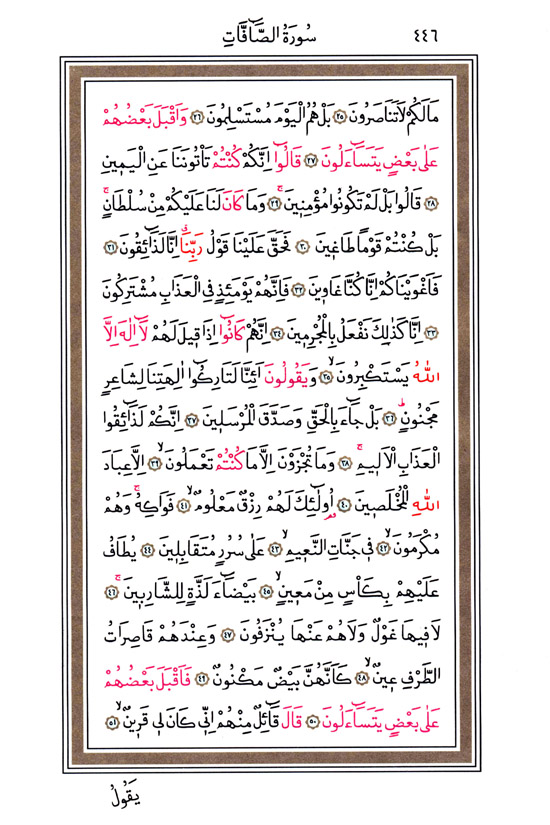 ٤٤٦ سُورَةُ الصَّٓافَّاتِ
مَالَكُمْ لَا تَنَاصَرُونَ ﴿٢٥﴾ بَلْ هُمُ الْيَوْمَ مُسْتَسْلِمُونَ ﴿٢٦﴾ وَاَقْبَلَ بَعْضُهُمْ
عَلٰى بَعْضٍ يَتَسَٓاءَلُونَ ﴿٢٧﴾ قَالُٓوا اِنَّكُمْ كُنْتُمْ تَأْتُونَنَا عَنِ الْيَم۪ينِ
﴿٢٨﴾ قَالُوا بَلْ لَمْ تَكُونُوا مُؤْمِن۪ينَۚ ﴿٢٩﴾ وَمَا كَانَ لَنَا عَلَيْكُمْ مِنْ سُلْطَانٍۚ
بَلْ كُنْتُمْ قَوْمًا طَاغ۪ينَ ﴿٣٠﴾ فَحَقَّ عَلَيْنَا قَوْلُ رَبِّنَاۗ اِنَّا لَذَٓائِقُونَ ﴿٣١﴾
فَاَغْوَيْنَاكُمْ اِنَّا كُنَّا غَاو۪ينَ ﴿٣٢﴾ فَاِنَّهُمْ يَوْمَئِذٍ فِي الْعَذَابِ مُشْتَرِكُونَ
﴿٣٣﴾ اِنَّا كَذٰلِكَ نَفْعَلُ بِالْمُجْرِم۪ينَ ﴿٣٤﴾ اِنَّهُمْ كَانُٓوا اِذَا ق۪يلَ لَهُمْ لَٓا اِلٰهَ اِلَّا
اللّٰهُ يَسْتَكْبِرُونَۙ ﴿٣٥﴾ وَيَقُولُونَ اَئِنَّا لَتَارِكُٓوا اٰلِهَتِنَا لِشَاعِرٍ
مَجْنُونٍۜ ﴿٣٦﴾ بَلْ جَٓاءَ بِالْحَقِّ وَصَدَّقَ الْمُرْسَل۪ينَ ﴿٣٧﴾ اِنَّكُمْ لَذَٓائِقُوا
الْعَذَابِ الْاَل۪يمِۚ ﴿٣٨﴾ وَمَا تُجْزَوْنَ اِلَّا مَا كُنْتُمْ تَعْمَلُونَۙ ﴿٣٩﴾ اِلَّا عِبَادَ
اللّٰهِ الْمُخْلَص۪ينَ ﴿٤٠﴾ اُو۬لٰٓئِكَ لَهُمْ رِزْقٌ مَعْلُومٌۙ ﴿٤١﴾ فَوَاكِهُۚ وَهُمْ
مُكْرَمُونَۙ ﴿٤٢﴾ ف۪ي جَنَّاتِ النَّع۪يمِۙ ﴿٤٣﴾ عَلٰى سُرُرٍ مُتَقَابِل۪ينَ ﴿٤٤﴾ يُطَافُ
عَلَيْهِمْ بِكَأْسٍ مِنْ مَع۪ينٍۙ ﴿٤٥﴾ بَيْضَٓاءَ لَذَّةٍ لِلشَّارِب۪ينَۚ ﴿٤٦﴾
لَا ف۪يهَا غَوْلٌ وَلَا هُمْ عَنْهَا يُنْزَفُونَ ﴿٤٧﴾ وَعِنْدَهُمْ قَاصِرَاتُ
الطَّرْفِ ع۪ينٌۙ ﴿٤٨﴾ كَاَنَّهُنَّ بَيْضٌ مَكْنُونٌ ﴿٤٩﴾ فَاَقْبَلَ بَعْضُهُمْ
عَلٰى بَعْضٍ يَتَسَٓاءَلُونَ ﴿٥٠﴾ قَالَ قَٓائِلٌ مِنْهُمْ اِنّ۪ي كَانَ ل۪ي قَر۪ينٌۙ ﴿٥١﴾
يَقُولُ